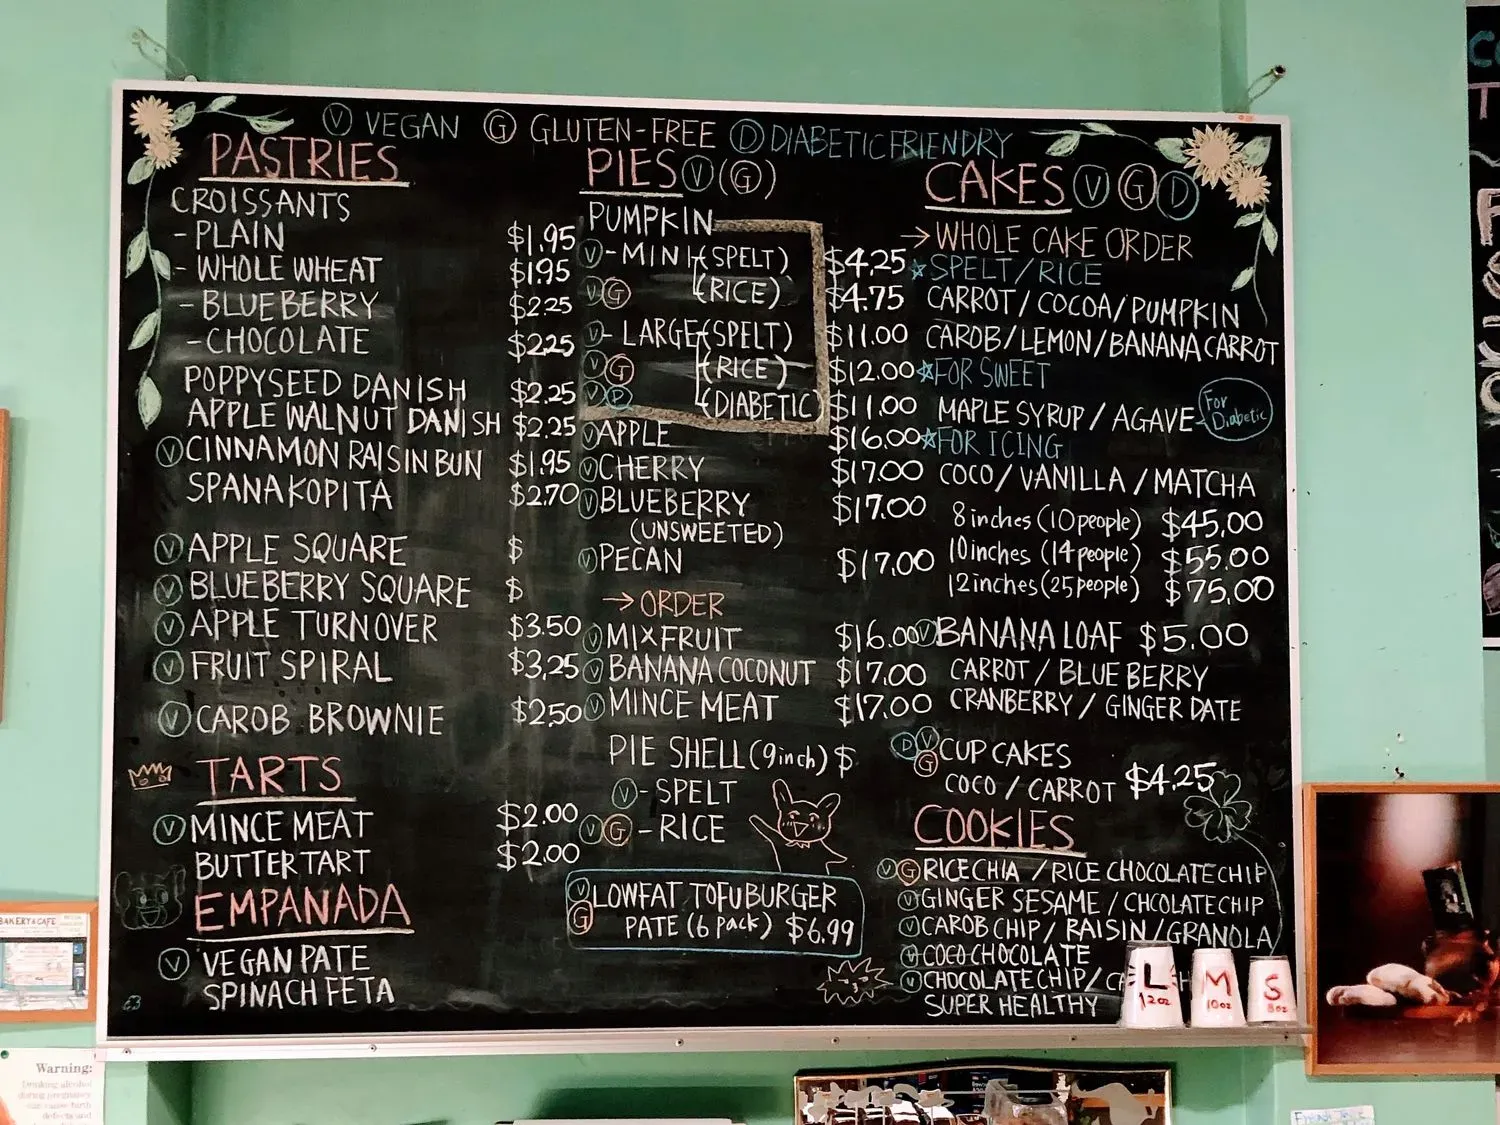 Ⓥ VEGAN Ⓖ GLUTEN-FREE Ⓓ DIABETIC FRIENDRY
PASTRIES
CROISSANTS
- PLAIN $1.95
- WHOLE WHEAT $1.95
- BLUEBERRY $2.25
- CHOCOLATE $2.25
POPPYSEED DANISH $2.25
APPLE WALNUT DANISH $2.25
Ⓥ CINNAMON RAISIN BUN $1.95
SPANAKOPITA $2.70
Ⓥ APPLE SQUARE $
Ⓥ BLUEBERRY SQUARE $
Ⓥ APPLE TURNOVER $3.50
Ⓥ FRUIT SPIRAL $3.25
Ⓥ CAROB BROWNIE $2.50
TARTS
Ⓥ MINCE MEAT $2.00
BUTTER TART $2.00
EMPANADA
Ⓥ VEGAN PATE
SPINACH FETA
PIES Ⓥ (Ⓖ)
PUMPKIN
Ⓥ - MINI (SPELT) $4.25
Ⓥ Ⓖ (RICE) $4.75
Ⓥ - LARGE (SPELT) $11.00
Ⓥ Ⓖ (RICE) $12.00
Ⓥ Ⓓ (DIABETIC) $11.00
Ⓥ APPLE $16.00
Ⓥ CHERRY $17.00
Ⓥ BLUEBERRY $17.00
(UNSWEETED)
Ⓥ PECAN $17.00
→ ORDER
Ⓥ MIX FRUIT $16.00
Ⓥ BANANA COCONUT $17.00
Ⓥ MINCE MEAT $17.00
PIE SHELL (9inch) $
Ⓥ - SPELT
Ⓥ Ⓖ - RICE
Ⓥ LOWFAT TOFU BURGER
Ⓖ PATE (6 pack) $6.99
CAKES Ⓥ Ⓖ Ⓓ
→ WHOLE CAKE ORDER
☆ SPELT / RICE
CARROT / COCOA / PUMPKIN
CAROB / LEMON / BANANA CARROT
☆ FOR SWEET
MAPLE SYRUP / AGAVE
For Diabetic
☆ FOR ICING
COCO / VANILLA / MATCHA
8 inches (10 people) $45.00
10 inches (14 people) $55.00
12 inches (25 people) $75.00
Ⓥ BANANA LOAF $5.00
CARROT / BLUEBERRY
CRANBERRY / GINGER DATE
Ⓓ Ⓥ Ⓖ CUP CAKES
COCO / CARROT $4.25
COOKIES
Ⓥ Ⓖ RICE CHIA / RICE CHOCOLATE CHIP
Ⓥ GINGER SESAME / CHCOLATE CHIP
Ⓥ CAROB CHIP / RAISIN / GRANOLA
Ⓥ COCO CHOCOLATE
Ⓥ CHOCOLATE CHIP /
SUPER HEALTHY
L 12oz
M 10oz
S 8oz
BAKERY & CAFE
Warning:
Drinking alcohol
during pregnancy
can cause birth
defects and